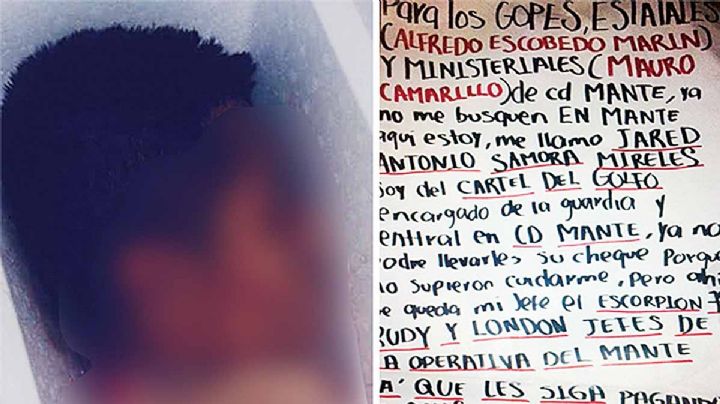 Para los GOPES, ESTATALES
(ALFREDO ESCOBEDO MARIN)
Y MINISTERIALES (MAURO
CAMARILLO) de cd MANTE, ya
no me busquen EN MANTE
aqui estoy, me llamo JARED
ANTONIO SAMORA MIRELES
soy del CARTEL DEL GOLFO
encargado de la guardia y
entiral en CD MANTE, ya no
podre llevarles su cheque Porque
no supieron cuidarme, Pero ahi
se queda mi Jefe el ESCORPION
RUDY Y LONDON JEFES DE
LA OPERATIVA DEL MANTE
PA' QUE LES SIGA PAGANDO